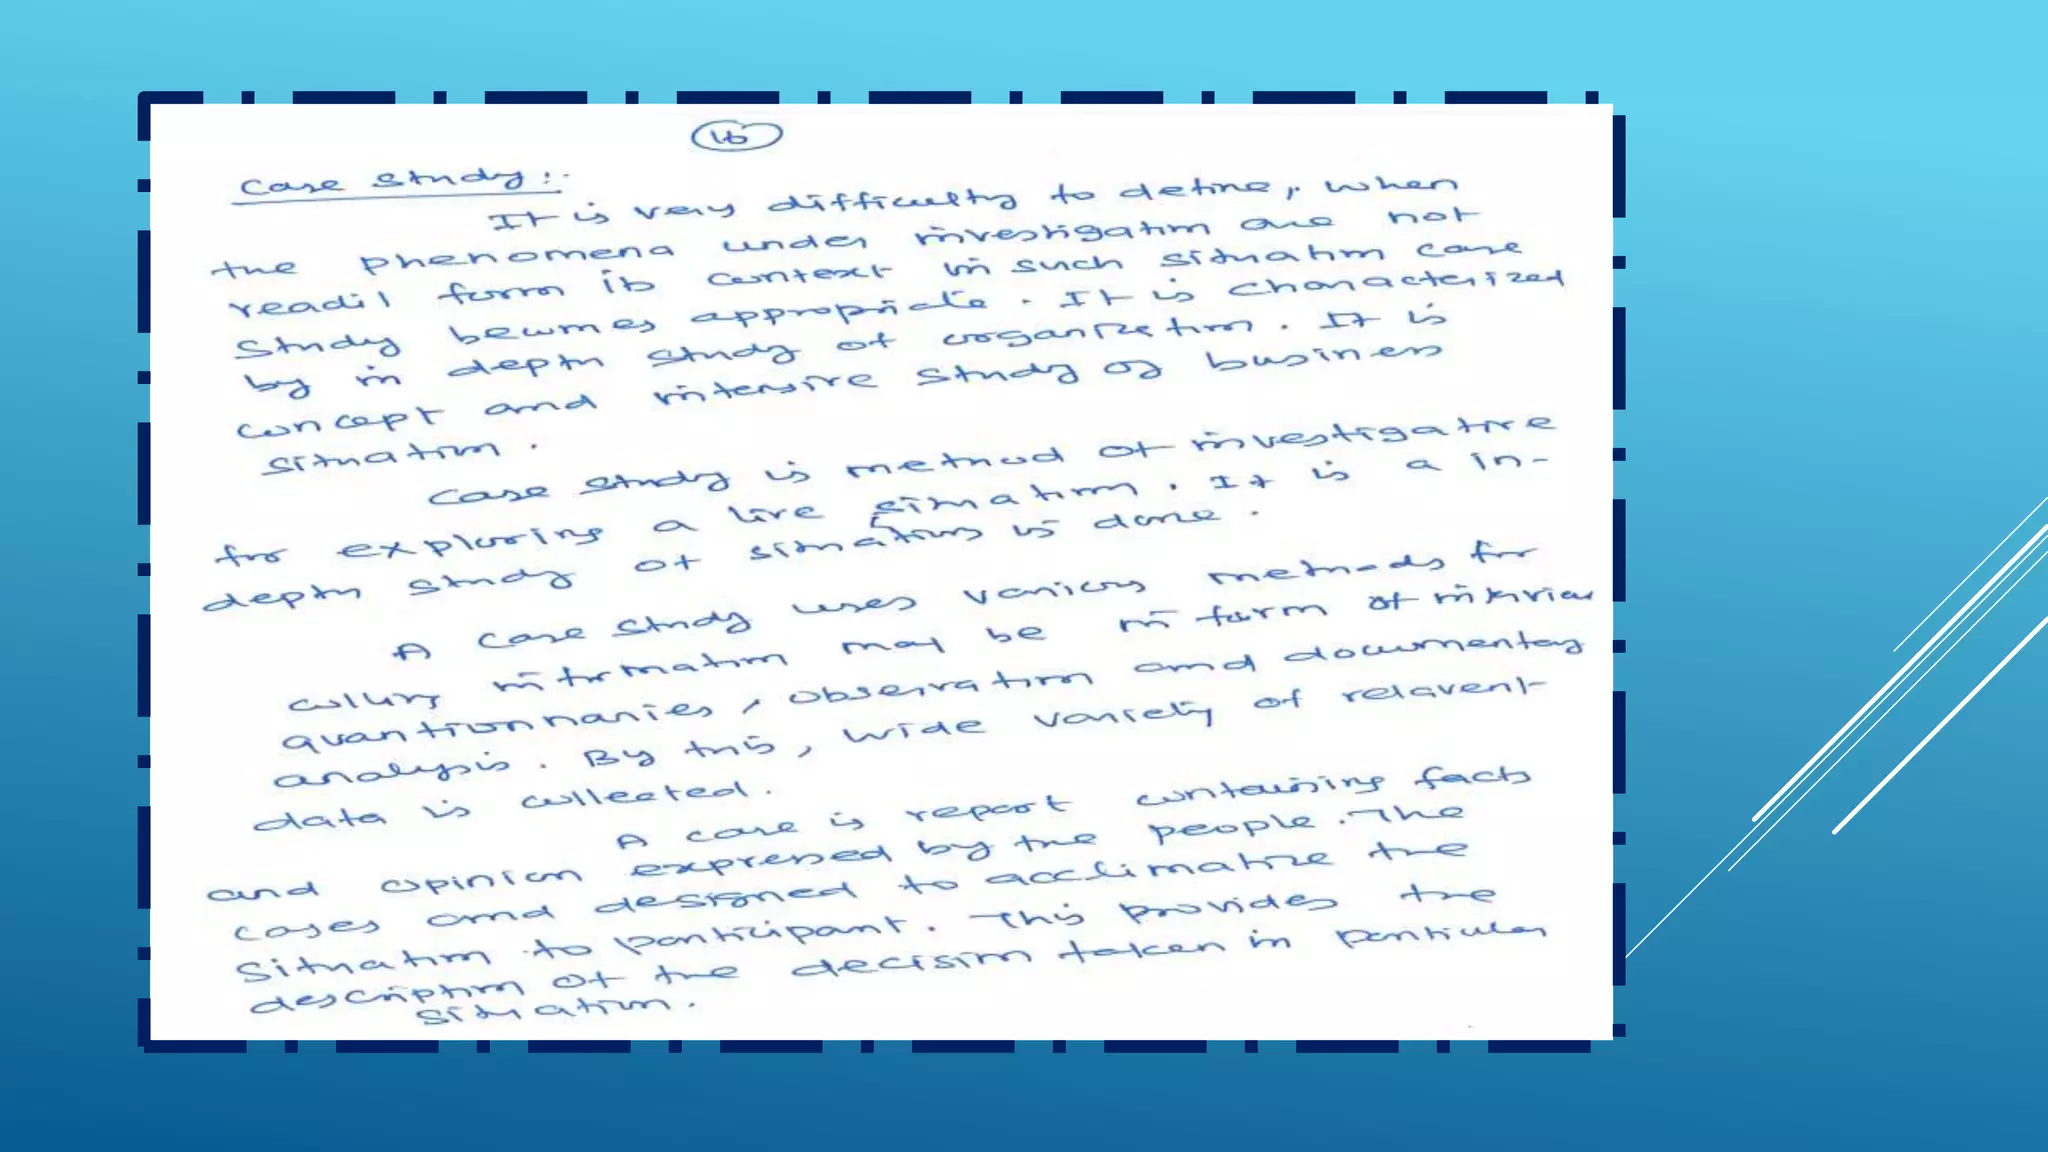 16
Case Study :-
It is very difficulty to define, when
the phenomena under investigation are not
readil form its context in such situation case
Study becomes appropriate. It is characterized
by in depth study of organization. It is
concept and intensive study of business
situation.
Case study is method of investigative
for exploring a live situation. It is a in-
depth study of situations is done.
A case study uses various methods for
information may be in form of
quantionnaries, observation and documentary
analysis. By this, wide variety of relavent
data is collected.
A case is report containing facts
and opinion expressed by the people. The
cases and designed to acclimatize the
Situation to participant. This provides the
description of the decision taken in particular
situation.